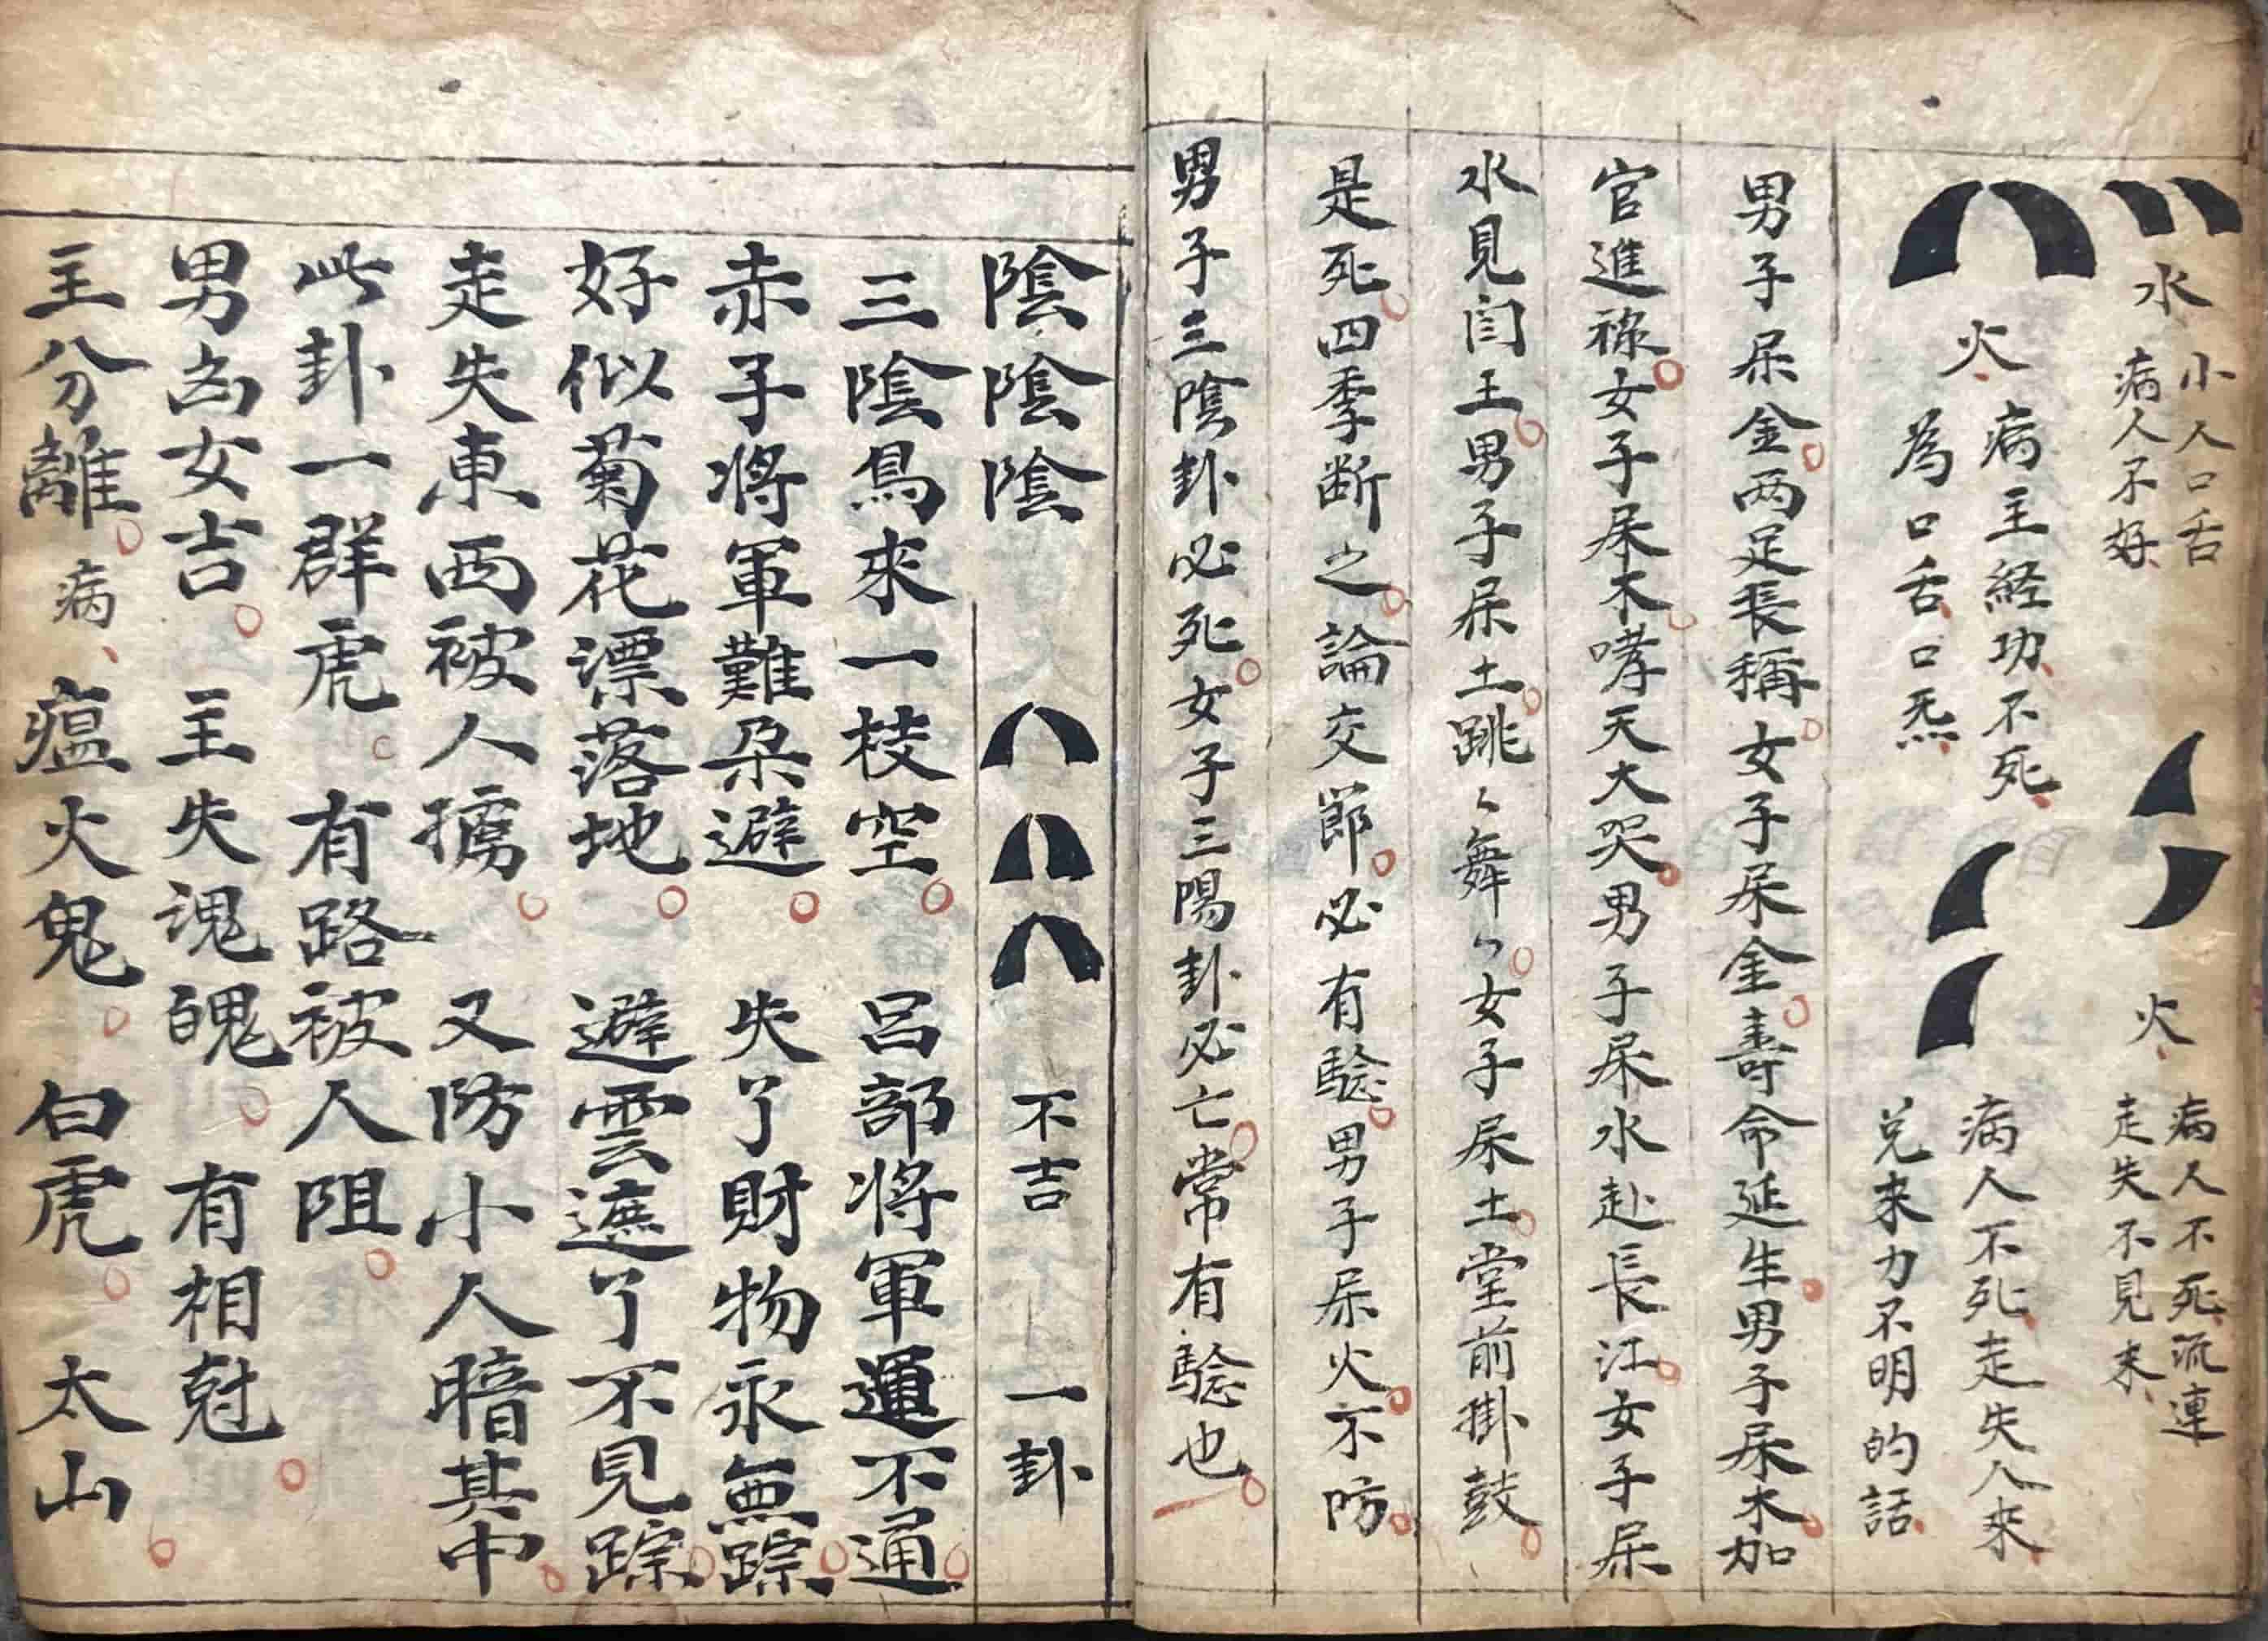 水
小人口舌
病人不好
火
病人不死流連
走失不見来
火
病主経功不死
為口舌口炁
病人不死走失人來
兑来力不明的話
男子屎金两足長稱女子屎金壽命延生男子屎木加
官進祿女子屎木哮天大哭男子屎水赴長江女子屎
水見闫王男子屎土跳〻舞〻女子屎土堂前掛鼓
是死四季断之論交節必有騐男子屎火不防
男子三陰卦必死女子三陽卦必亡常有騐也
陰陰陰 不吉 一卦
三陰鳥來一枝空 呂部將軍運不通
赤子将軍難朵避 失了財物永無踪
好似菊花漂落地 避雲遮了不見踪
走失東西被人擄 又防小人暗其中
此卦一群虎 有路被人阻
男凶女吉 主失魂魄 有相尅
主分離病瘟火鬼 白虎 太山